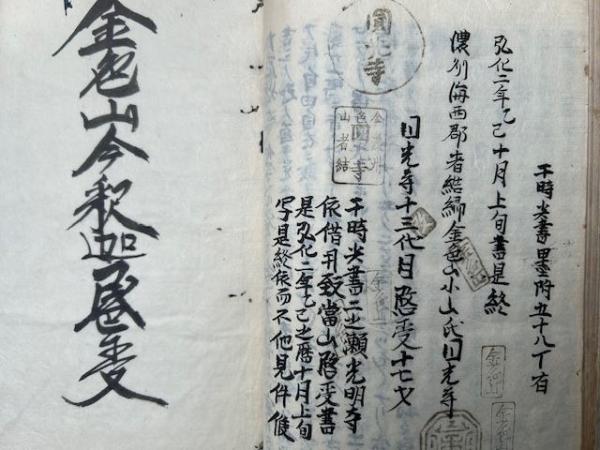 于時此書墨附五十八丁有
弘化二年乙巳十月上旬書是終
濃州海西郡者結金色山小山氏円光寺
円光寺十三代目啓受十七才
圓光寺
于時此書二之瀬光明寺
依借用致當山啓受書
是弘化二年乙巳之暦十月上旬
写是終依而不他見件候
金色山今釈迦啓受